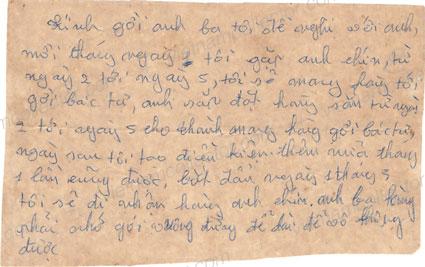 Kính gởi anh ba tôi đề nghị với anh,
mỗi tháng ngày 2 tôi gặp anh chín, từ
ngày 2 tới ngày 5, tôi sẽ mang hàng tới
gởi bác tư, anh sắp đặt hàng sẵn từ ngày
2 tới ngày 5 cho thành mang hàng gởi bác tư,
ngày sau tôi tạo điều kiện thêm nữa tháng
1 lần cũng được, bắt đầu ngày 1 tháng 5
tôi sẽ đi nhận hàng anh chín. anh ba
phải nhớ gói vuông đừng để dài để vô thùng
được